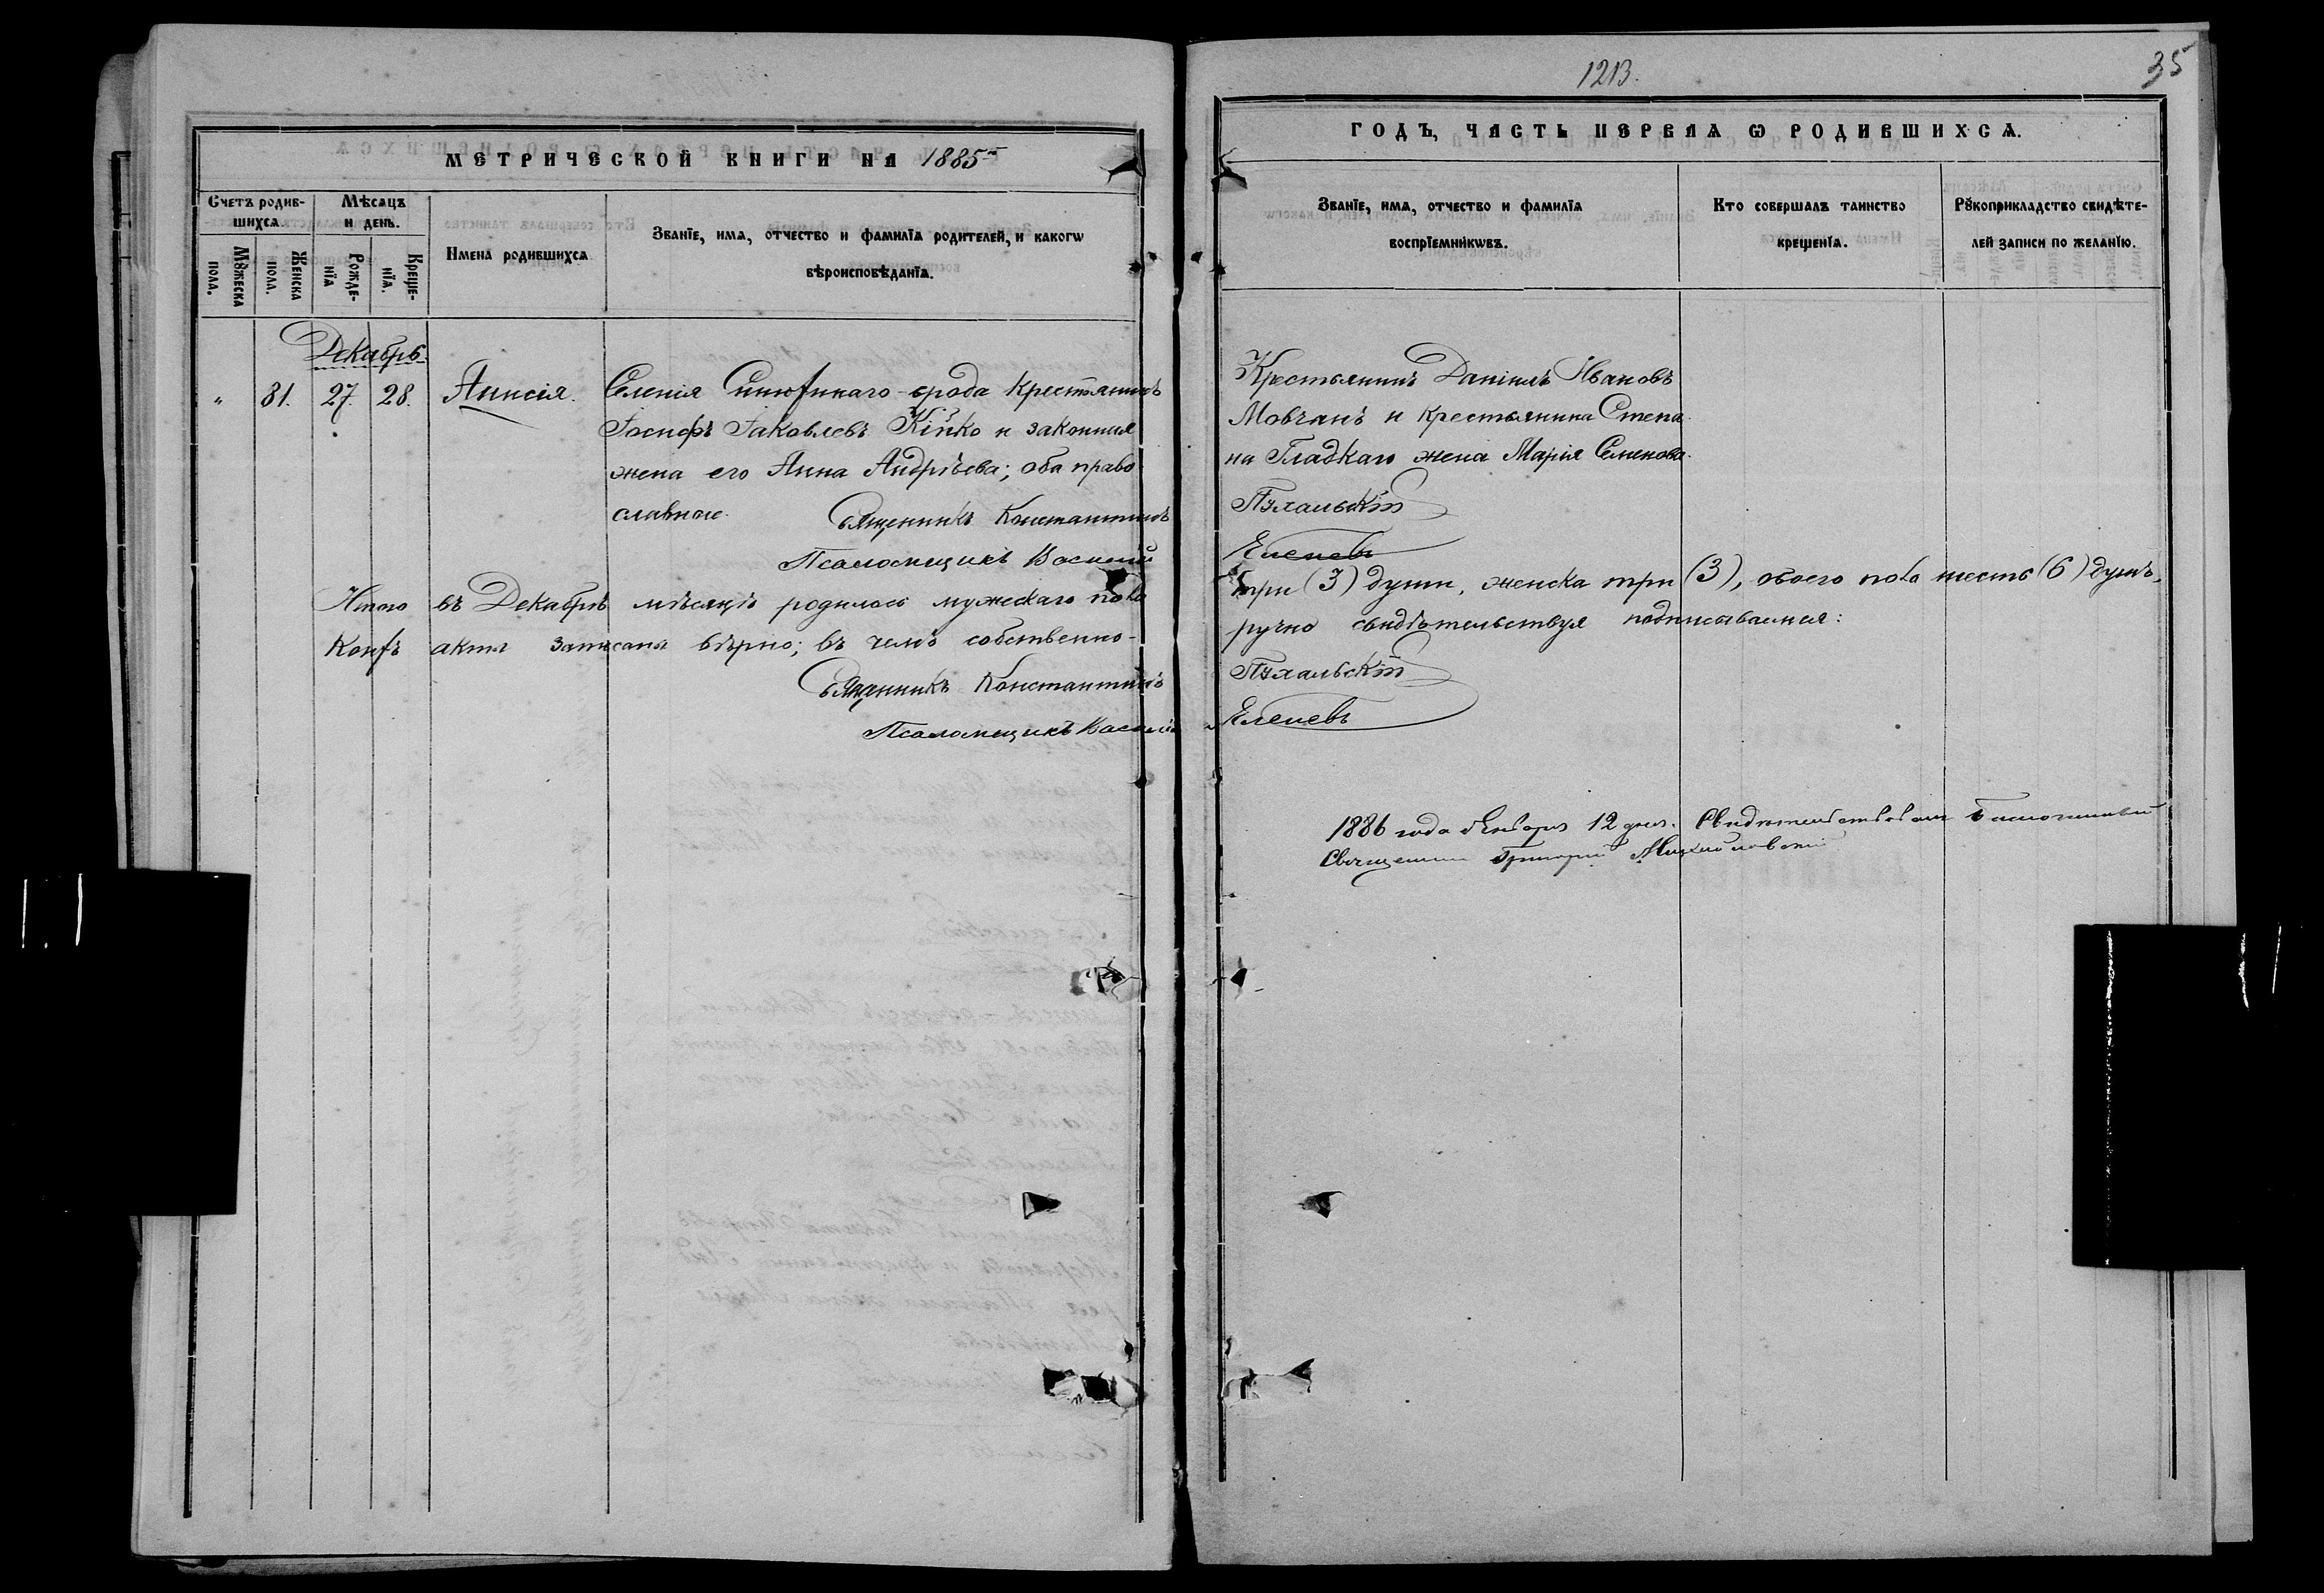 1213.
35
МЕТРИЧЕСКОЙ КНИГИ НА 1885
ГОДЪ, ЧАСТЬ ПЕРВАѦ Ѡ РОДИВШИХСѦ.
Счетъ родив-
шихсѧ.
Мѣсѧцъ
и день.
Мꙋжеска
пола.
Женска
пола.
Рожде-
нїѧ
Креще-
нїѧ.
Имена родившихсѧ
Званїе, имѧ, отчество и фамилїѧ родителей, и какогѡ
вѣроисповѣданїѧ.
Званїе, имѧ, отчество и фамилїѧ
воспрїемникѡвъ.
Кто совершалъ таинство
крещенїѧ.
Рꙋкоприкладство свидѣте-
лей записи по желанїю.
Декабрь.
" 31. 27. 28. Анисія.
Селенія крестьянинъ
Іосифъ Іаковлевъ Кійко и законная
жена его Анна Андрѣева; оба право
славные.
Священникъ Константинъ
Псаломщикъ Василій
Крестьянинъ Даніилъ Ивановъ
Мовчанъ и крестьянина Степа
на Гладкаго жена Марія Семенова.
Пухальскій
Еленевъ
Итого въ Декабрѣ мѣсяцѣ родилось мужескаго пола три (3) души, женска три (3), обоего пола шесть (6) душъ,
акта записана вѣрно; въ чемъ собственно-ручно свидѣтельствуя подписываемся:
Священникъ Константинъ Пухальскій
Псаломщикъ Василій Еленевъ
1886 года Января 12 дня. Свидѣтельствовалъ Благочинный
Священникъ Григорій